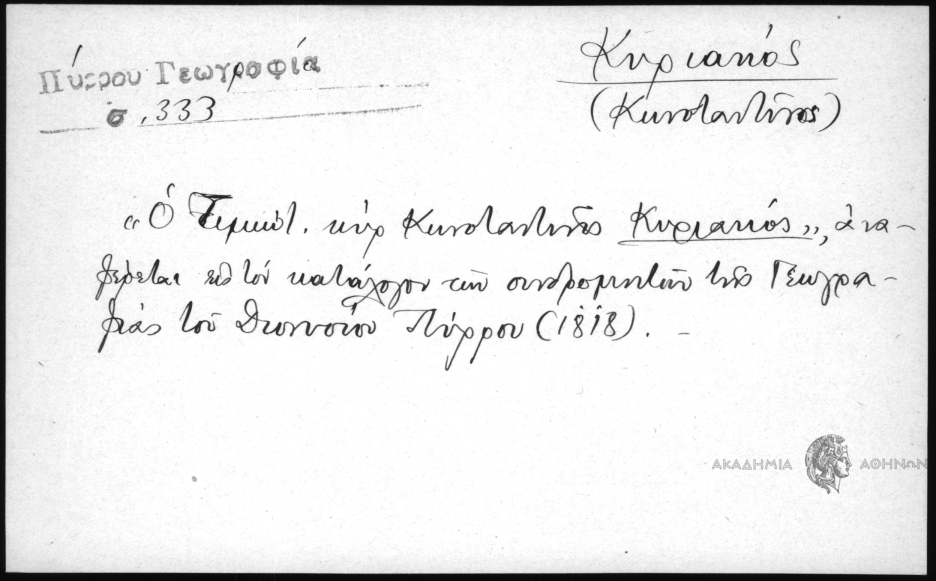 Πύρρου Γεωγραφία
σ. 333
Κυριακός
(Κωνσταντίνος)
«Ὁ Τιμιώτ. κύρ Κωνσταντίνος Κυριακός», ἀνα-
φέρεται εἰς τὸν κατάλογον τῶν συνδρομητῶν τῆς Γεωγρα-
φίας τοῦ Διονυσίου Πύρρου (1818). –
ΑΚΑΔΗΜΙΑ ΑΘΗΝΩΝ